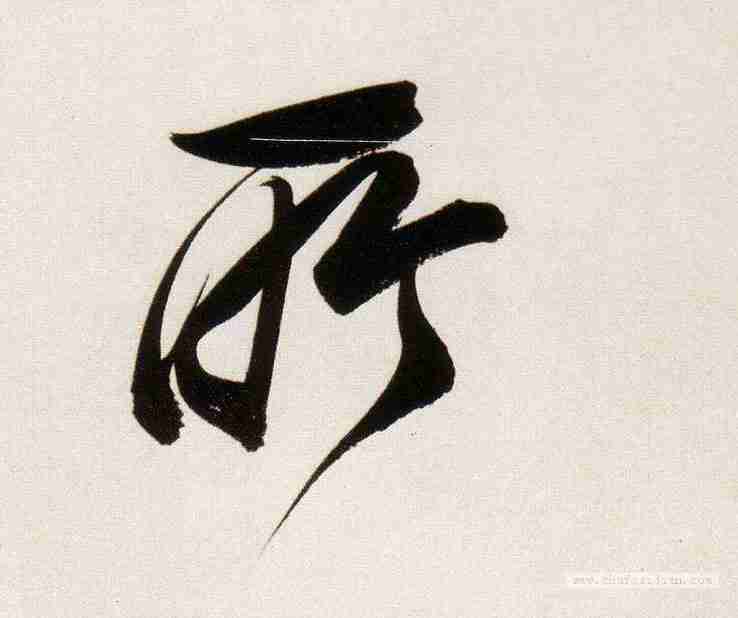 所
www.shufazidian.com